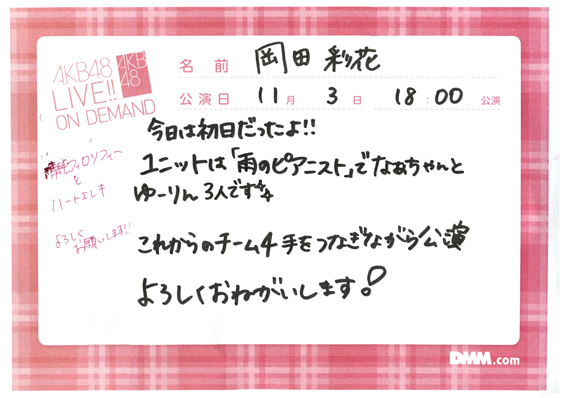 AKB48
LIVE!!
ON DEMAND
AKB
48
名前 岡田彩花
公演日 11月 3日 18:00 公演
今日は初日だったよ!!
ユニットは「雨のピアニスト」でなぁちゃんと
ゆーりん3人です
これからのチーム4手をつなぎながら公演
よろしくおねがいします!
フィロソフィー
と
ハートエレキ
よろしく
お願いします!!
DMM.com